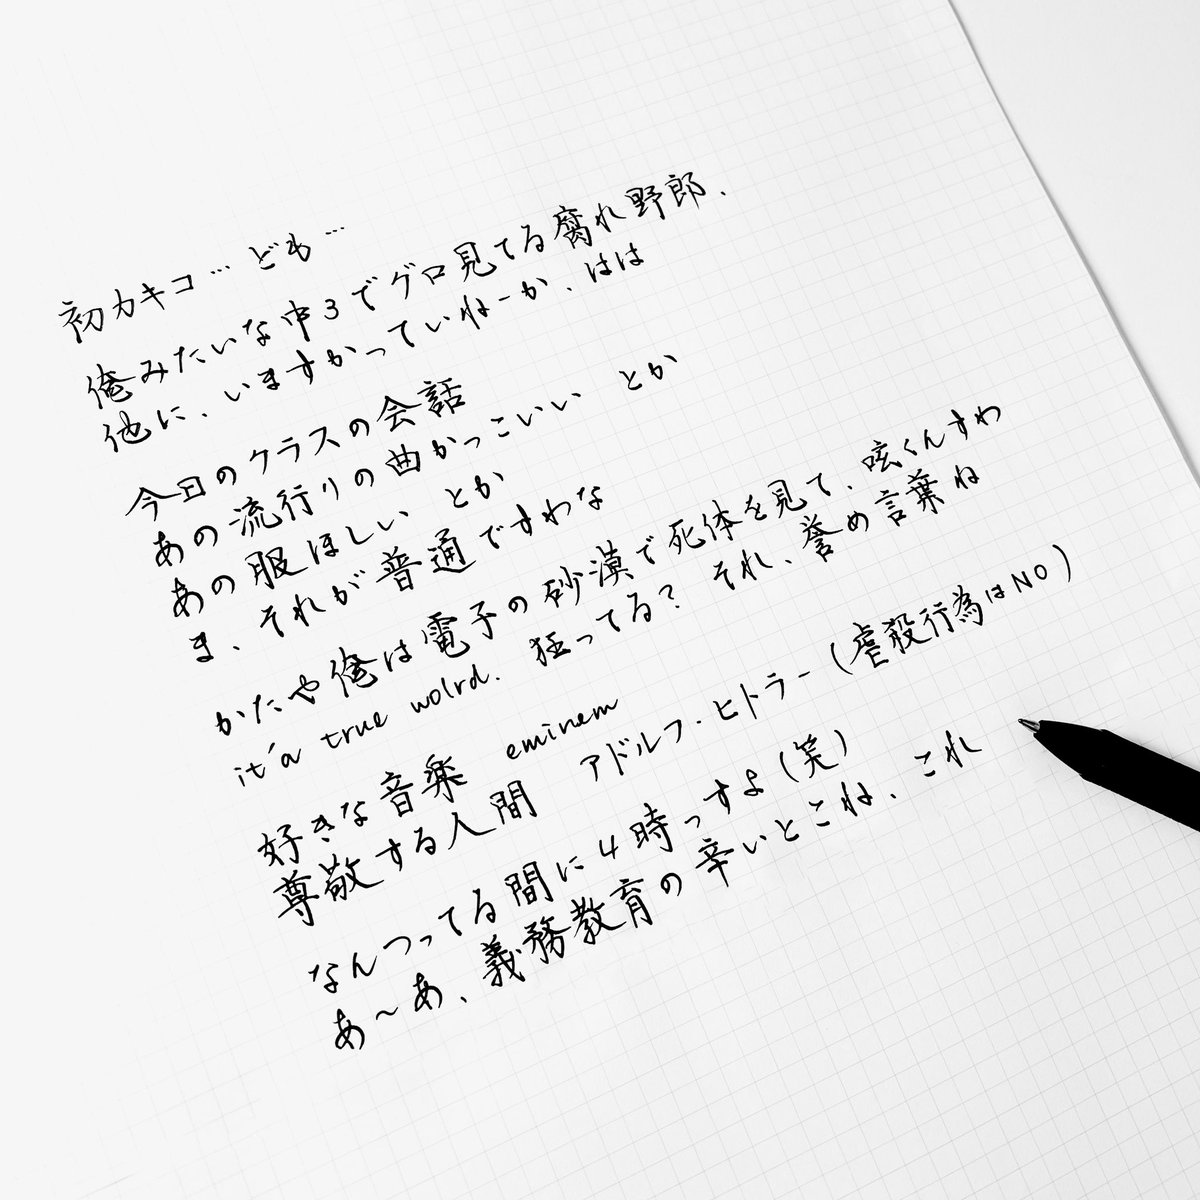 初カキコ…ども…
俺みたいな中3でグロ見てる腐れ野郎、
他に、いますかっていねーか、はは
今日のクラスの会話
あの流行りの曲かっこいい とか
あの服ほしい とか
ま、それが普通ですわな
かたや俺は電子の砂漠で死体を見て、呟くんすわ
it'a true wolrd. 狂ってる？ それ、誉め言葉ね
好きな音楽 eminem
尊敬する人間 アドルフ・ヒトラー（虐殺行為はNO）
なんつってる間に4時っすよ（笑）
あ～あ、義務教育の辛いとこね、これ